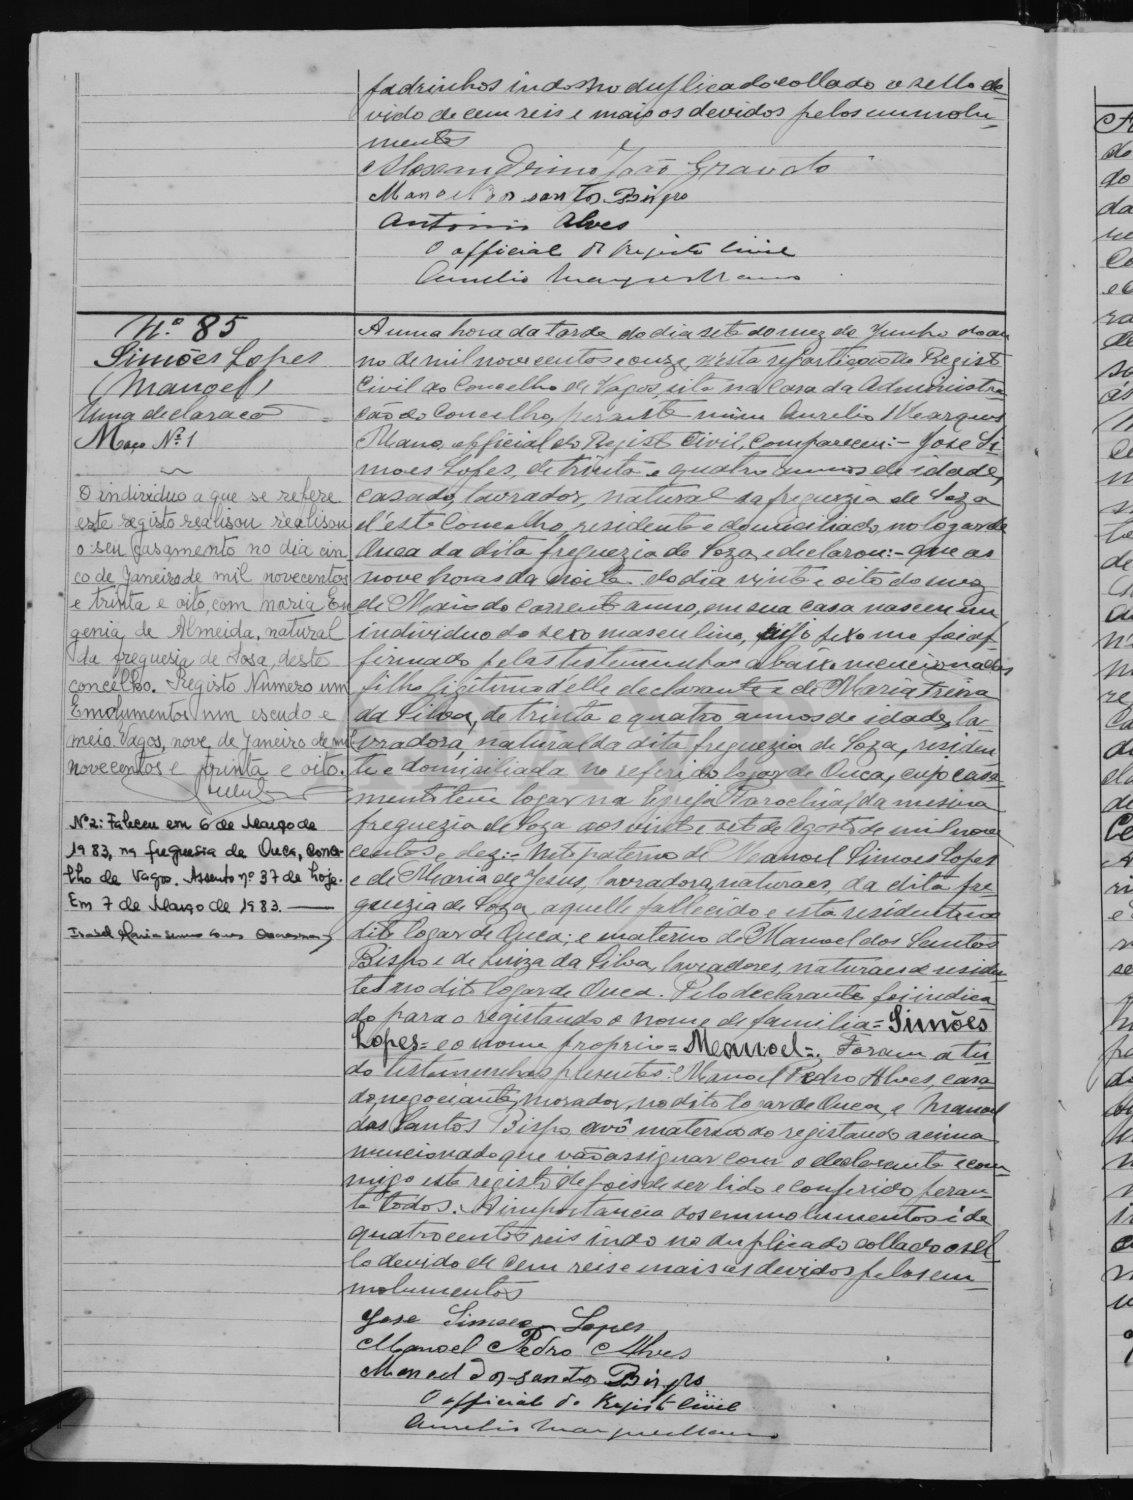 padrinhos indo no duplicado collado o sello de
vido de cem reis e mais os devidos pelos emmolu-
mentos
Alexandrino João Grando
Manoel dos santos Bispo
Antonio Alves
O official do Registo Civil
Aurelio Marques Mano
N.º 85
Simões Lopes
(Manoel)
Uma declaração
Maço Nº 1
O individuo a que se refere
este registo realisou realisou
o seu casamento no dia cin
co de Janeiro de mil novecentos
e trinta e oito, com Maria Eu
genia de Almeida, natural
da freguesia de Sosa, deste
concelho. Registo Numero um
Emolumentos um escudo e
meio. Vagos, nove de Janeiro de mil
novecentos e trinta e oito.
Nº 2: Faleceu em 6 de Março de
1983, na freguesia de Ouca, conce-
lho de Vagos. Assento nº 37 de hoje.
Em 7 de Março de 1983.
Isabel Maria
A uma hora da tarde do dia sete do mez de Junho do an
no de mil novecentos e onze, n'esta repartição do Regist
Civil do Concelho de Vagos, sita na Casa da Administra
ção do Concelho, perante mim Aurelio Marques
Mano, official do Regist Civil, compareceu:- José Si
mões Lopes, de trinta e quatro annos de idade,
casado, lavrador, natural da freguezia de Soza
d'este Concelho, residente e domiciliado no logar de
Ouca da dita freguezia de Soza, e declarou:- que as
nove horas da noite do dia vinte e oito do mez
de Maio do corrente anno, em sua casa nasceu um
individuo do sexo masculino, cujo sexo me foi af
firmado pelas testemunhas abaixo mencionadas
filho legitimo d'elle declarante e de Maria Treza
da Silva, de trinta e quatro annos de idade, la
vradora, natural da dita freguezia de Soza, residen
te e domiciliada no referido logar de Ouca, cujo casa
mento teve logar na Egreja Parochial da mesma
freguezia de Soza aos vinte e sete de Agosto de mil nove
centos e dez:- Neto paterno de Manoel Simões Lopes
e de Maria de Jesus, lavradores, naturaes, da dita fre
guezia de Soza, aquelle fallecido e esta residente no
dito logar de Ouca; e materno de Manoel dos Santos
Bispo e de Luiza da Silva, lavradores, naturaes e residen
tes no dito logar de Ouca. Pelo declarante foi indica
do para o registando o nome de familia = Simões
Lopes = e o nome proprio = Manoel =. Foram a tu
do testemunhas presentes: Manoel Pedro Alves, casa
do, negociante, morador, no dito logar de Ouca, e Manoel
dos Santos Bispo avô materno do registando acima
mencionado que vão assignar com o declarante e com
migo este registo depois de ser lido e conferido peran
te todos. A importancia dos emmolumentos é de
quatrocentos reis indo no duplicado collado o sel
lo devido de cem reis e mais os devidos pelos em
molumentos
Jose Simoes Lopes
Manoel Pedro Alves
Manoel dos santos Bispo
O official do Regist Civil
Aurelio Marques Mano